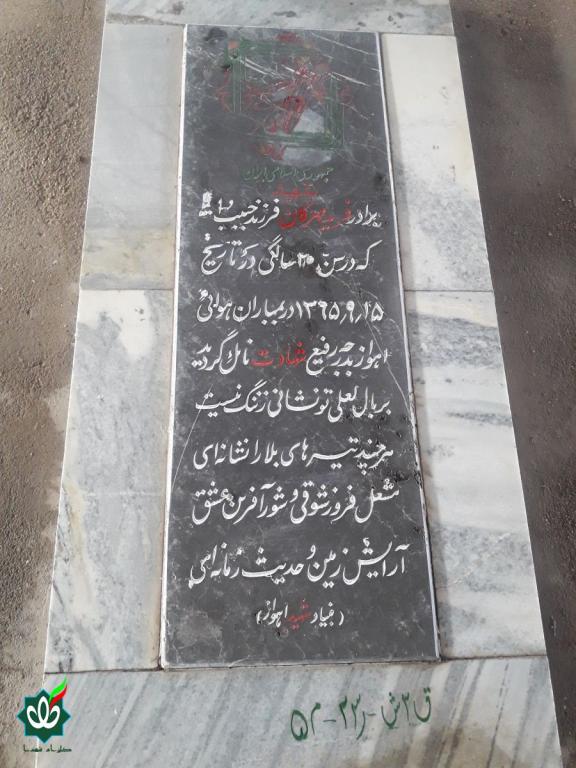 جمهوری اسلامی ایران
شهید
برادر فرید مهرگان فرزند حبیب
که در سن ۲۰ سالگی در تاریخ
۱۳۶۵٫۹٫۱۵ در بمباران هوائی
اهواز بدرجه رفیع شهادت نائل گردید
بر بال لعلی تو نشانی ز ننگ نیست
هر چند تیرهای بلا را نشانه ای
مشعل فروز شوقی و شور آفرین عشق
آرایش زمین و حدیث زمانه ای
(بنیاد شهید اهواز)
ق۲ش-ر۲۳-م۵
گلزار شهدا